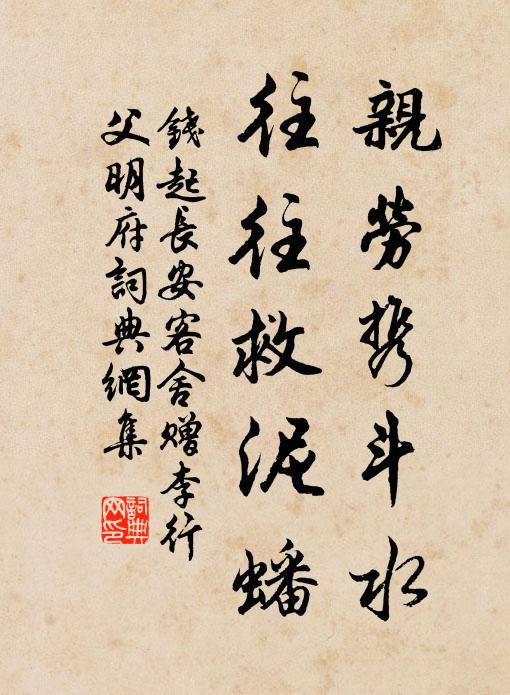 親勞携斗水
往往救泥蟠
錢起長安客舍赠李行
父明府詞典網集
詞典网印